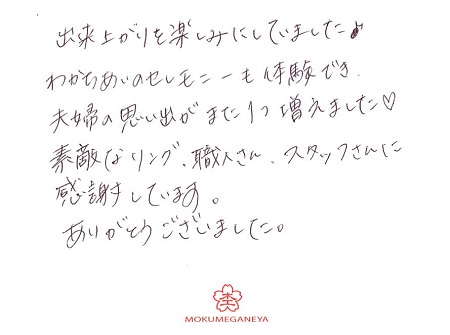 出来上がりを楽しみにしていました♪
わかちあいのセレモニーも体験でき、
夫婦の思い出がまた1つ増えました♡
素敵なリング、職人さん、スタッフさんに
感謝しています。
ありがとうございました。
杢
MOKUMEGANEYA